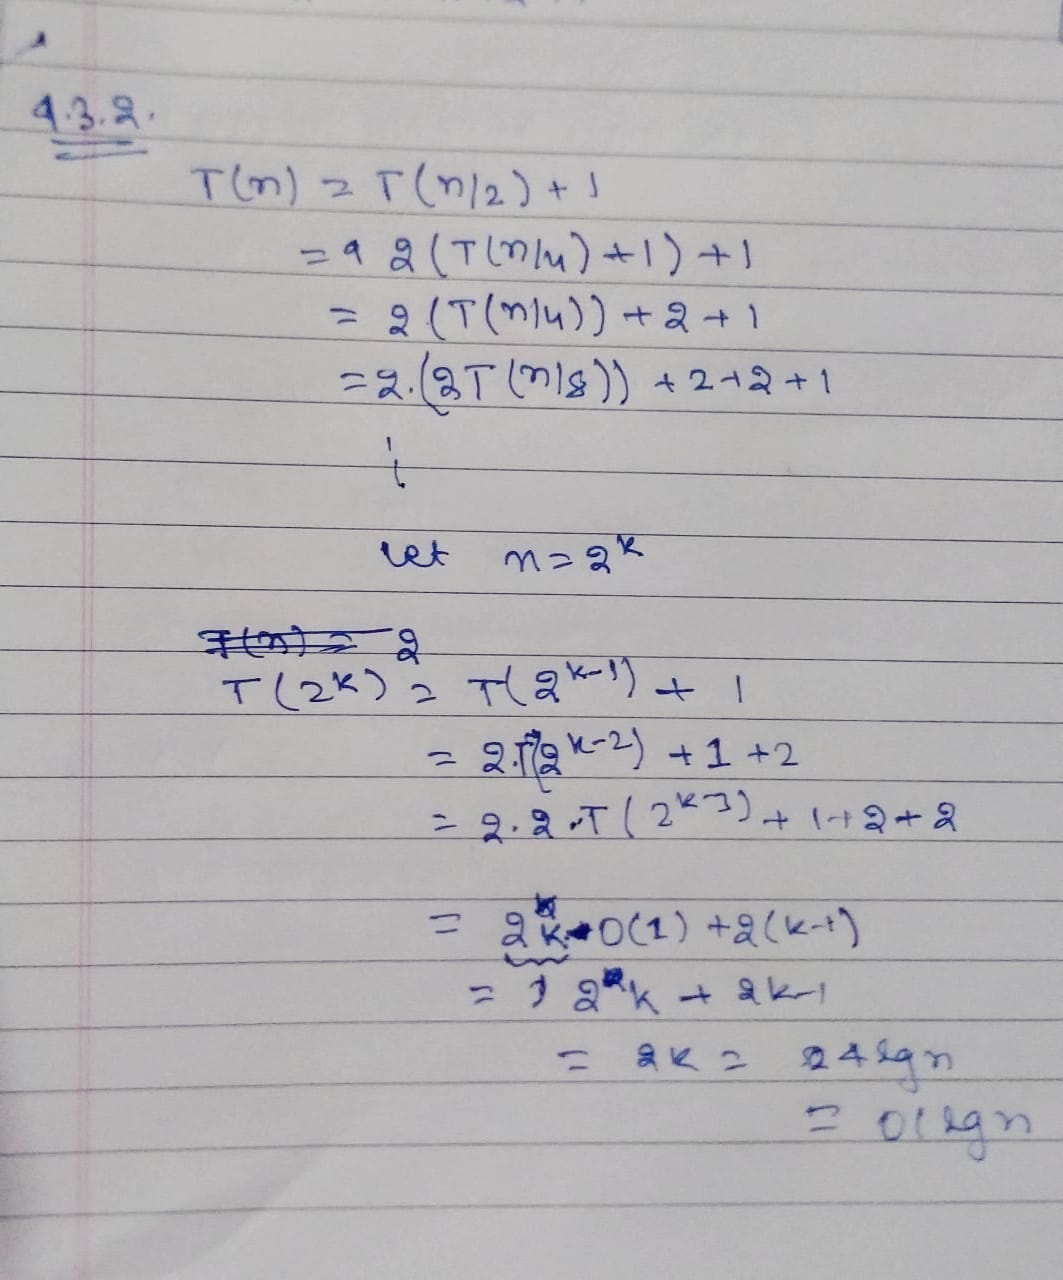 4.3.2.
T(n) = T(n/2) + 1
= 2(T(n/4)+1)+1
= 2(T(n/4))+2+1
=2.(2T(n/8)) +2+2+1
let n=2^k
2
T(2^k) = T(2^k-1) + 1
= 2.T(2^k-2) +1+2
= 2.2.T(2^k-3)+1+2+2
= 2 k. O(1) +2(k-1)
= 2 k + 2k-1
= 2k = 4lgn
= O(lgn